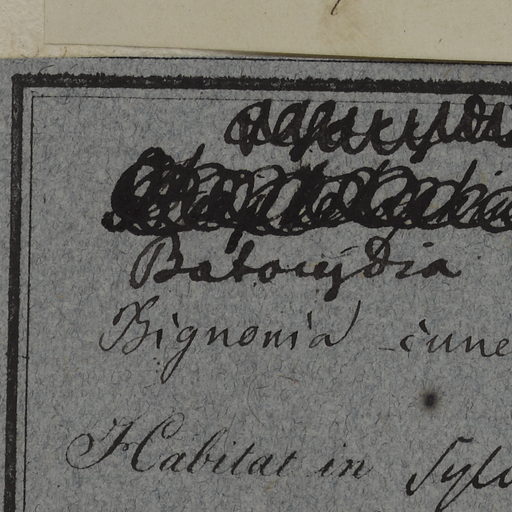 Batocydia
Bignonia cune
Habitat in Sylv